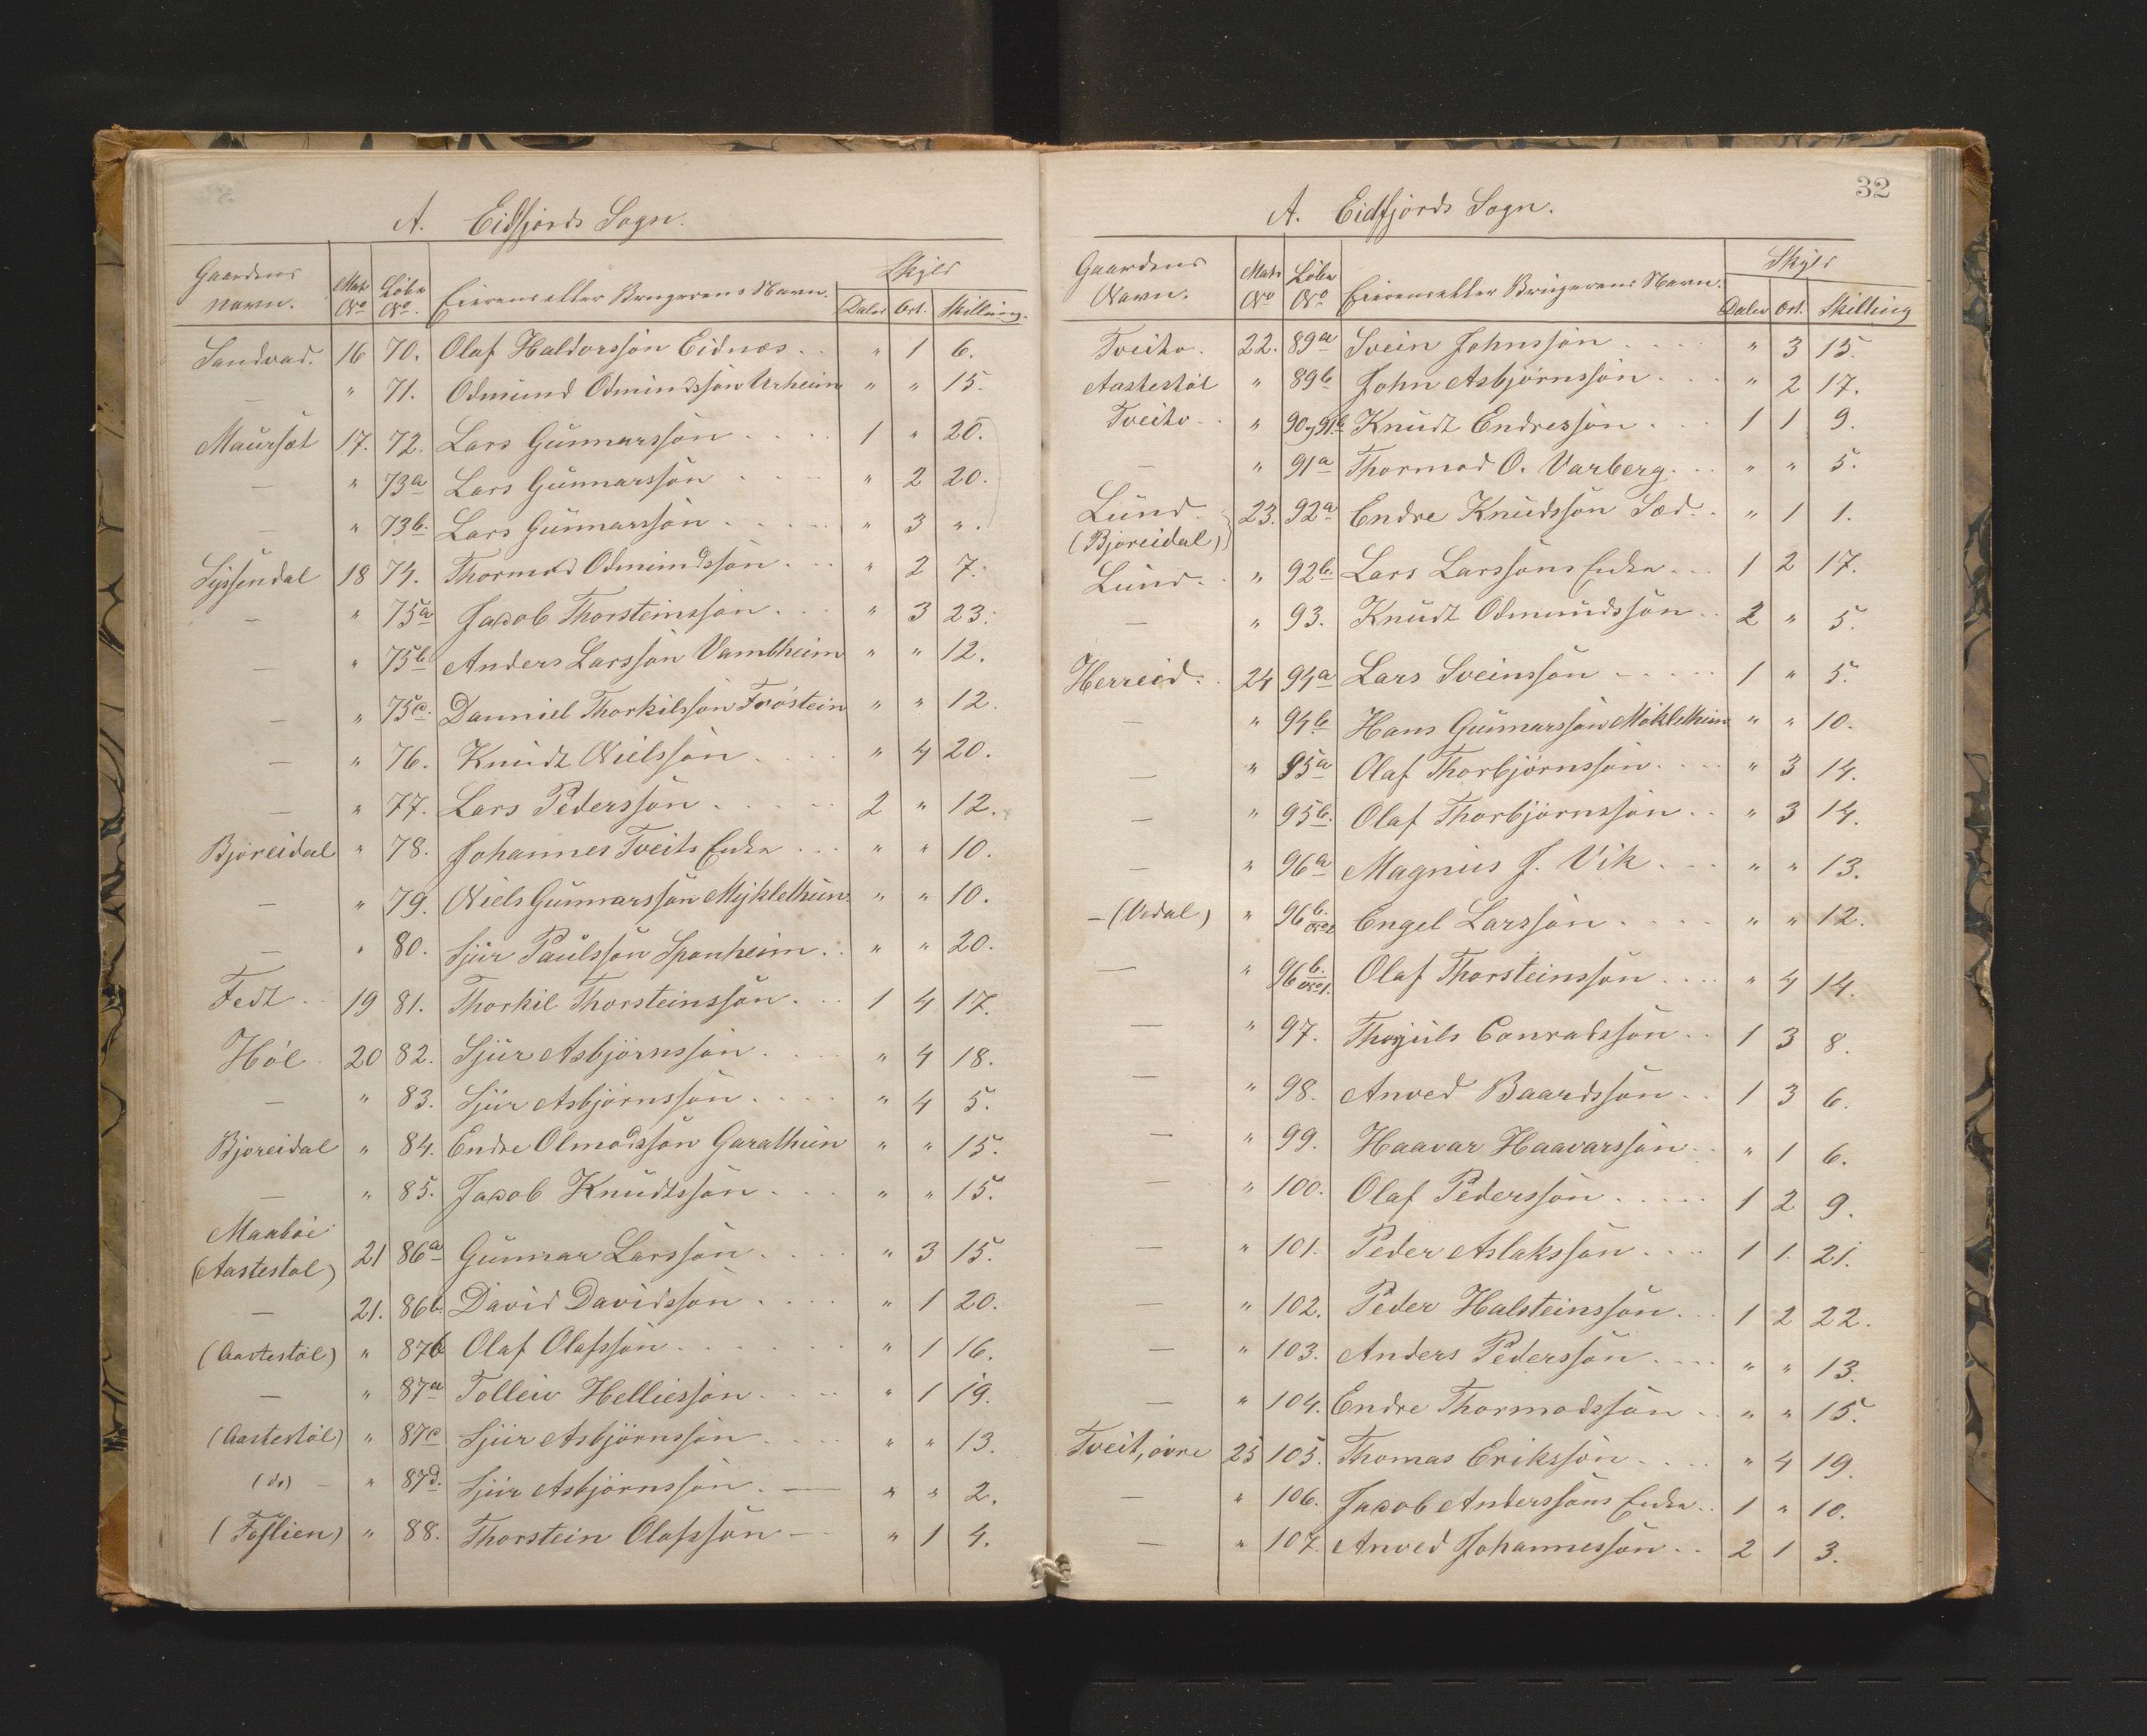 A. Eidfjords Sogn.
Gaardens Navn. Matr No Løbe No. Eierens eller Brugerens Navn. Skyld Daler Ort. Skilling.
Sandvad. 16 70. Olaf Haldorssön Eidnæs. . " 1 6.
— " 71. Odmund Odmundssön Urheim " " 15.
Maursæt 17. 72. Lars Gunnarssön . . . . 1 " 20.
— " 73a Lars Gunnarssön . . . . " 2 20.
— " 73b. Lars Gunnarssön . . . . . " 3 ".
Syssendal 18 74. Thormod Odmundssön . . . " 2 7.
— " 75a Jacob Thorsteinssön . . . " 3 23.
— " 75b Anders Larssön Vambheim " " 12.
— " 75c. Danniel Thorkilssön Fröstein " " 12.
— " 76. Knudt Nielssön . . . . " 4 20.
— " 77. Lars Pederssön . . . . . 2 " 12.
Björeidal " 78. Johannes Tveits Enke . . . " " 10.
— " 79. Niels Gunnarssön Myklethun. " " 10.
— " 80. Sjur Paulssön Spanheim . . " " 20.
Fedt . . 19 81. Thorkil Thorsteinssön . . . 1 4 17.
Höl . 20 82. Sjur Asbjörnssön . . . . " 4 18.
— " 83. Sjur Asbjörnssön . . . . " 4 5.
Björeidal " 84. Endre Olmodssön Garathun " " 15.
— " 85. Jacob Knudtssön . . . " " 15.
Maaböe
(Aastestöl) 21 86a Gunnar Larssön . . . . " 3 15.
— 21. 86b. David Davidssön . . . . " 1 20.
(Aastestöl) " 87b Olaf Olafssön . . . . . . . " 1 16.
— " 87a Tolleiv Helliessön . . . . " 1 19.
(Aastestöl) " 87c Sjur Asbjörnssön . . . . " " 13.
(do) — " 87d. Sjur Asbjörnssön . — " " 2.
(Foslien) " 88. Thorstein Olafssön — " 1 4.
32
A. Eidfjords Sogn.
Gaardens Navn. Matr No Løbe No Eierens eller Brugerens Navn. Skyld Daler Ort. Skilling
Tveito . 22. 89a Svein Johnssön . . . . " 3 15.
Aastestöl " 89b John Asbjörnssön . . . " 2 17.
Tveito . . " 90 og 91b Knudt Endressön . . . 1 1 9.
— " 91a Thormod O. Varberg. . . " " 5.
Lund. 23. 92a Endre Knudssön Sæd. . " 1 1.
(Björeidal)
Lund. . " 92b. Lars Larssöns Enke . . . 1 2 17.
— " 93. Knudt Odmundssön . . 2 " 5.
Herreid. . 24 94a Lars Sveinssön . . . . . 1 " 5.
— " 94b. Hans Gunnarssön Möklethun " " 10.
— " 95a Olaf Thorbjörnssön . . . . " 3 14.
— " 95b. Olaf Thorbjörnssön . . " 3 14.
— " 96a Magnus J. Vik . . . " " 13.
— (Vedal) " 96b. No 2 Engel Larssön . . . . " " 12.
— " 96b. No 1. Olaf Thorsteinssön . . . . " 4 14.
— " 97. Thorjuls Conradssön . . 1 3 8.
— " 98. Anved Baardssön . . 1 3 6.
— " 99. Haavar Haavarssön . . " 1 6.
— " 100. Olaf Pederssön . . . . . 1 2 9.
— " 101. Peder Aslakssön . . . . 1 1. 21.
— " 102. Peder Halsteinssön . . . 1 2 22.
— " 103. Anders Pederssön . . . . " " 13.
— " 104. Endre Thormodssön . . " " 15.
Tveit, övre 25 105. Thomas Erikssön . . . . " 4 19.
— " 106. Jacob Anderssöns Enke . . 1 " 10.
— " 107. Anved Johannessön . . 2 1 3.